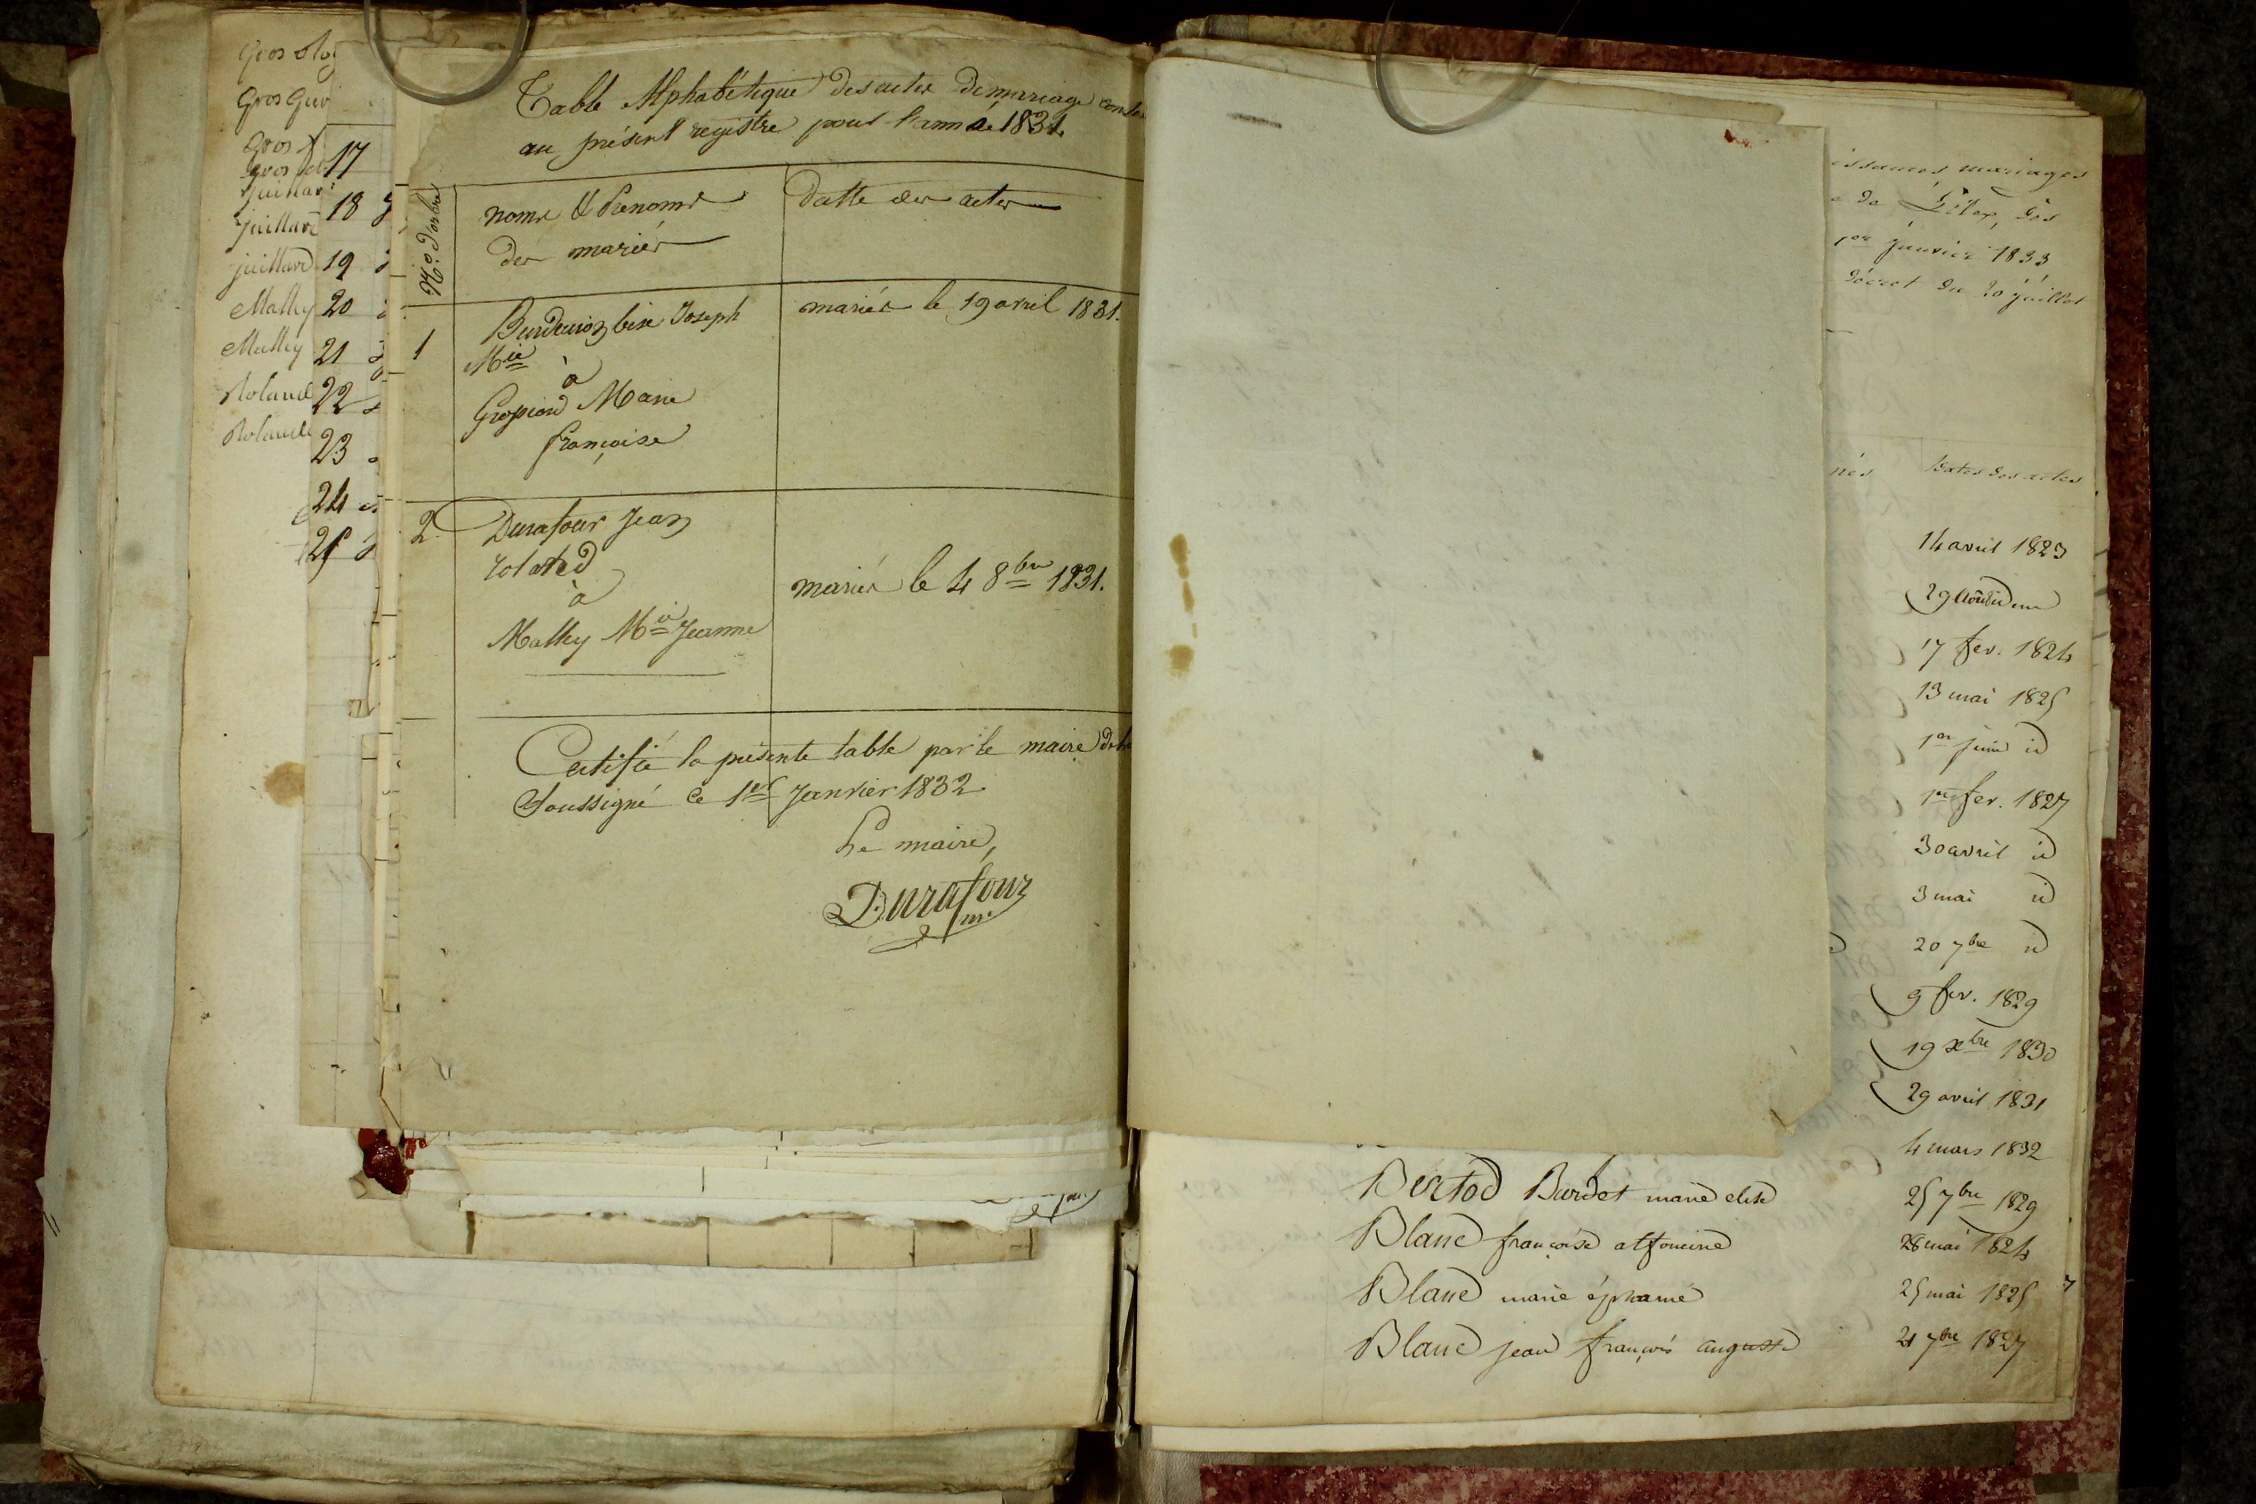 Gros
Gros
Gros
Gros
Juillard
Juillard
juillard
Mathy
Mathy
Roland
Roland
17
18
19
20
21
22
23
24
25
Table Alphabétique des actes de mariage
au présent registre pour l'année 1831.
No. d'ordre
noms & Prenoms
des mariés
datte des actes
1
Joseph
Mie
à
Marie
françoise
mariés le 19 avril 1831.
2
Durafour Jean
roland
à
Mathy Mie Jeanne
mariés le 4 8bre 1831.
Certifié la présente table par le maire
Soussigné ce 1er Janvier 1832
Le maire,
Durafour
issances mariages
1er janvier 1833
décret du 20 juillet
Dates des actes
14 avril 1823
29 Août idem
17 fev. 1824
13 mai 1825
1er juin id
1er fev. 1827
30 avril id
3 mai id
20 7bre id
9 fev. 1829
19 xbre 1830
29 avril 1831
4 mars 1832
Bertod Burdet marie elise 25 7bre 1829
Blanc françoise alfonsine 28 mai 1824
Blanc marie 25 mai 1825
Blanc jean françois auguste 21 7bre 1827